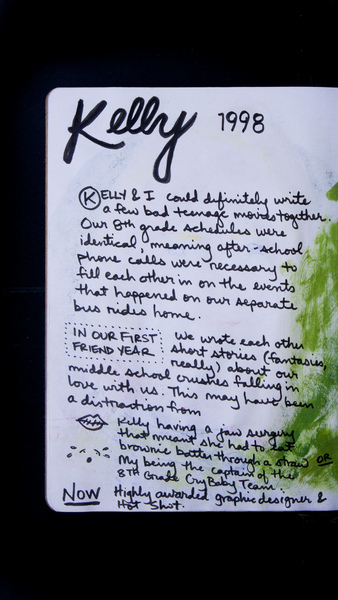 Kelly 1998
KELLY & I could definitely write
a few bad teenage movies together.
Our 8th grade schedules were
identical, meaning after-school
phone calls were necessary to
fill each other in on the events
that happened on our separate
bus rides home.
IN OUR FIRST
FRIEND YEAR
We wrote each other
short stories (fantasies,
really) about our
middle school crushes falling in
love with us. This may have been
a distraction from
Kelly having a jaw surgery
that meant she had to eat
brownie batter through a straw OR
My being the captain of the
8th Grade CryBaby Team.
NOW Highly awarded graphic designer &
Hot Shot.